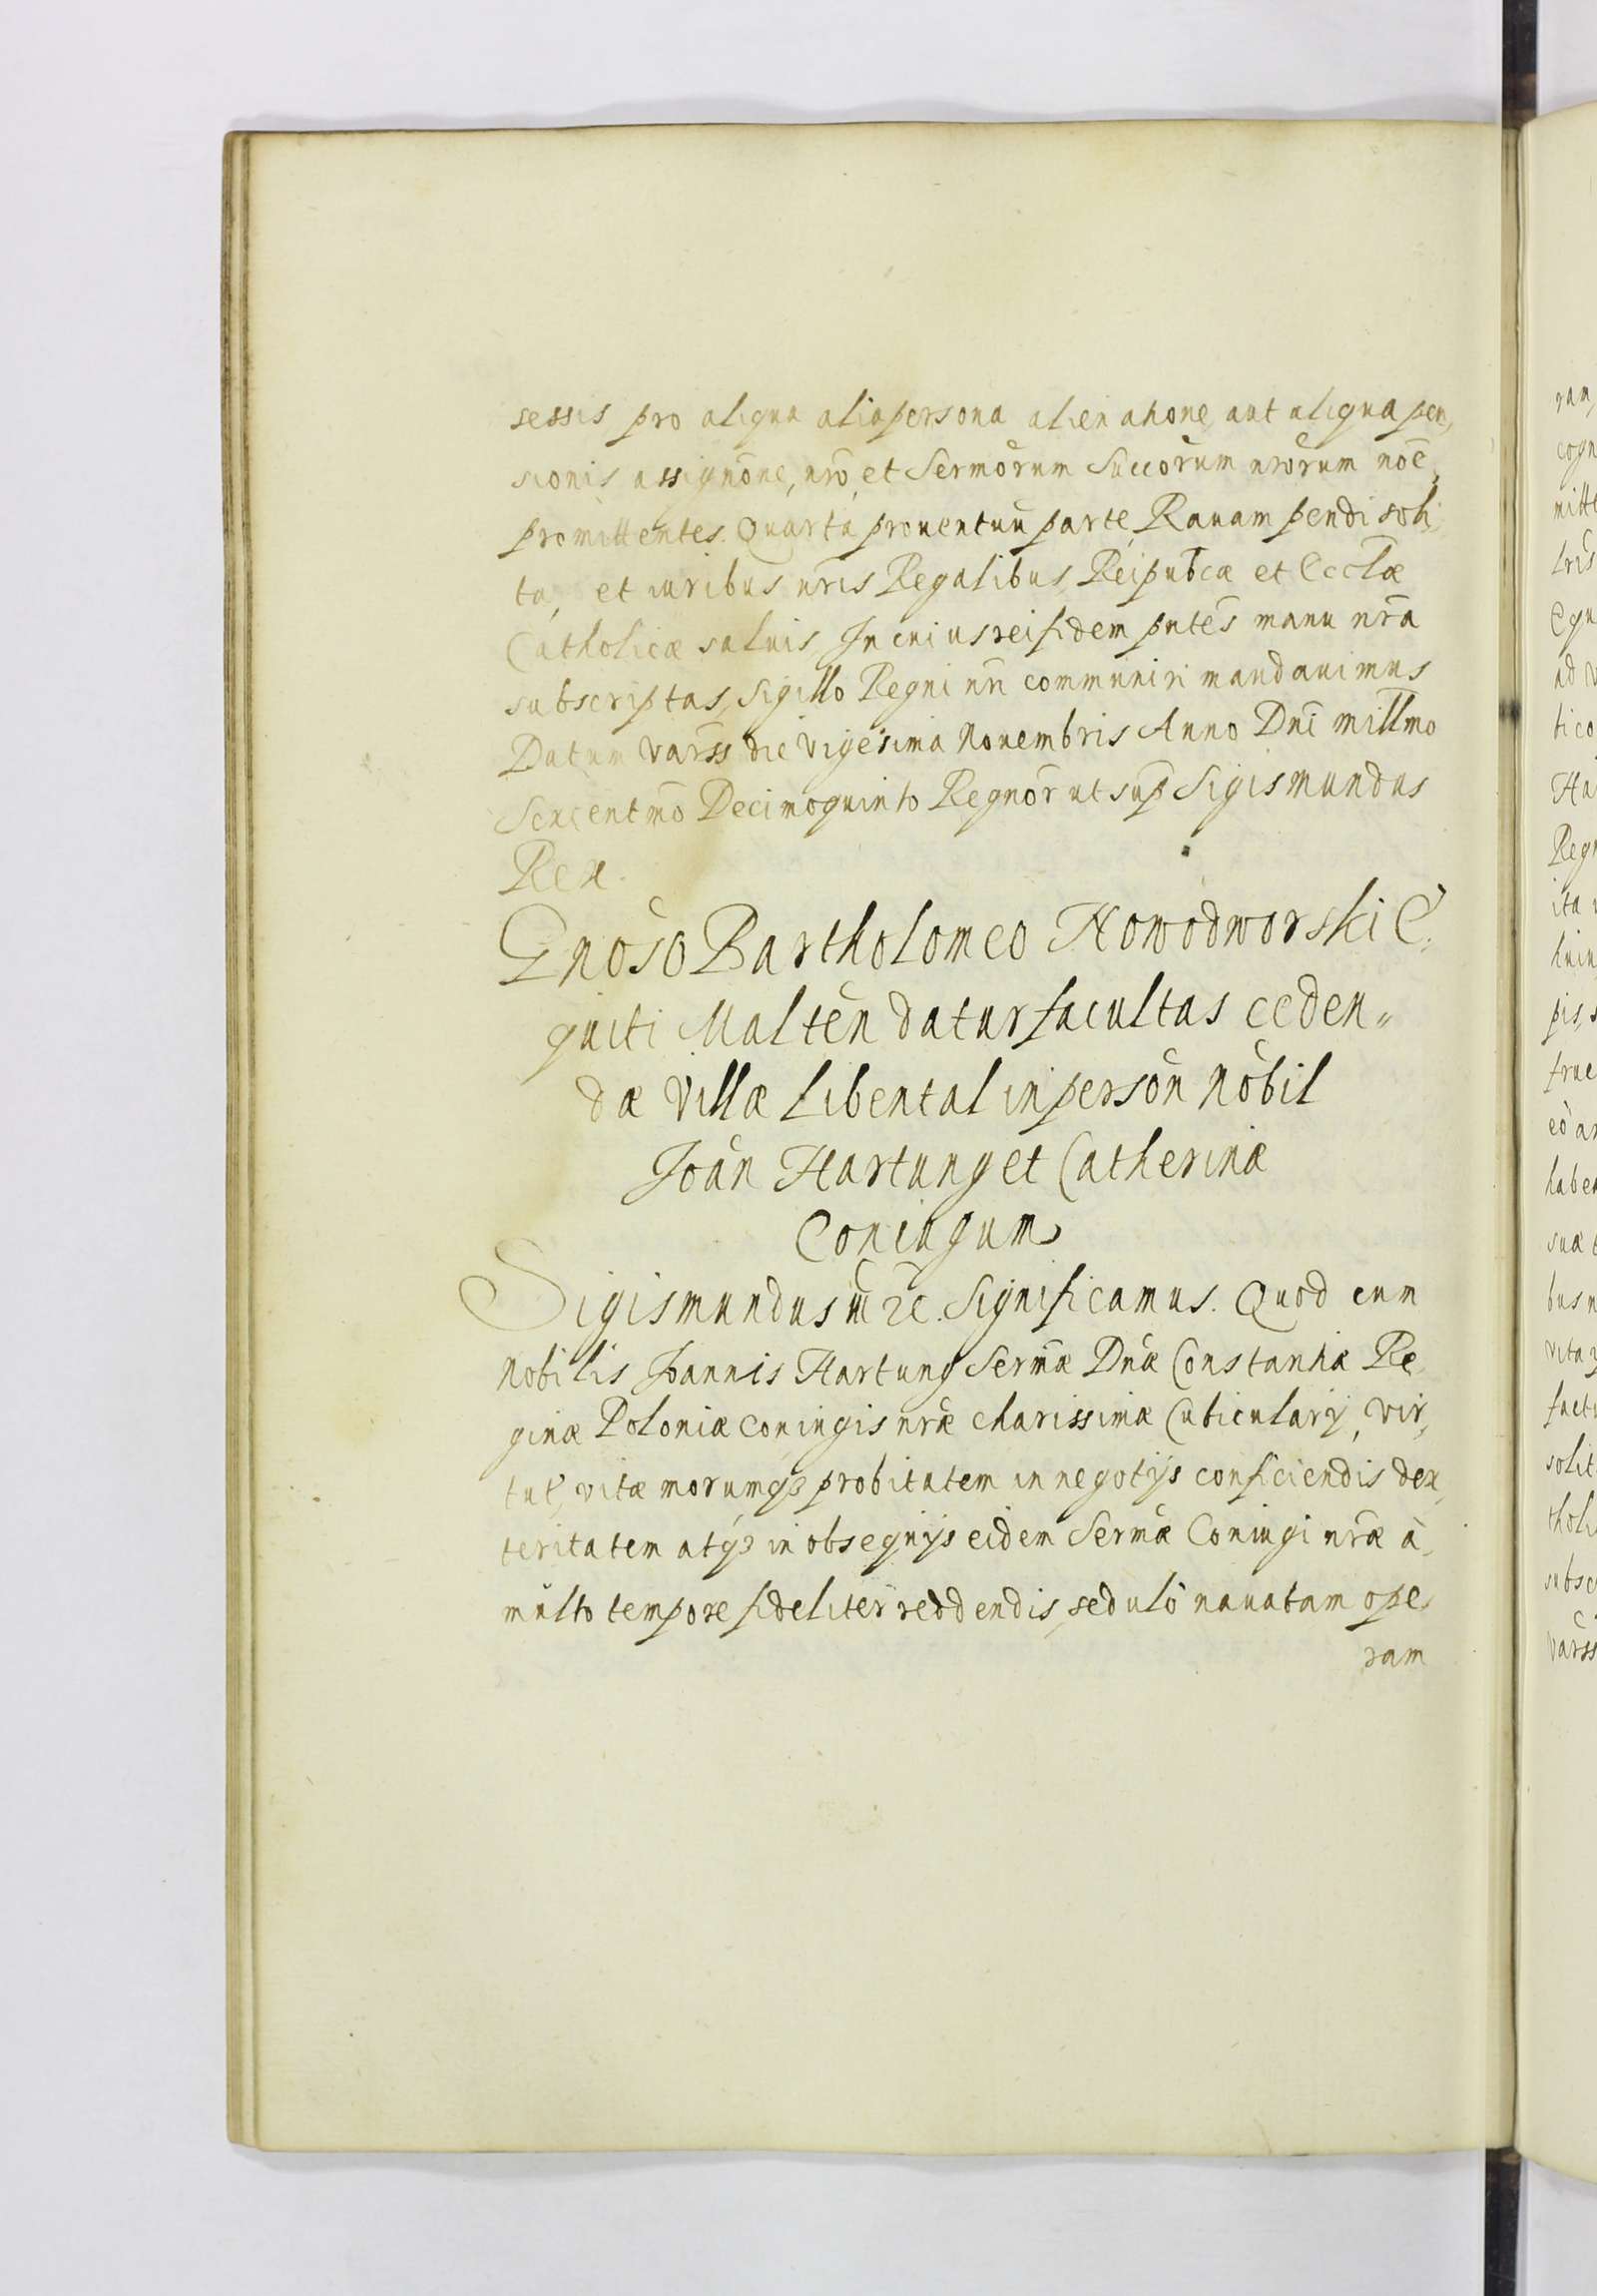 sessis pro aliqua alia persona alienatione, aut aliqua pen,
sionis assignõne, nrõ, et Sermõrum Succorum nrõrum nõe,
promittentes. Quarta prouentuũ parte, Rauam pendi soli,
ta, et iuribus nr̃is Regalibus, Reipubcæ et Eccl̃æ
Catholicæ saluis, In cuius rei fidem pñtes manu nr̃a
subscriptas, Sigillo Regni nr̃i communiri mandauimus
Datum Varss die Vigesima Nouembris Anno Dnĩ millmo
Sexcentmõ Decimoquinto Regnor̃ ut sup̃ Sigismundus
Rex.
Gnoso Bartholomeo Nowodworski E,
quiti Malten datur facultas ceden„
dæ Villæ Libental in person Nobil
Joan Hartung et Catherinæ
Coniugum
Sigismundus III &c. Significamus. Quod cum
Nobilis Joannis Hartung Serm̃æ Dnæ Constantiæ Re,
ginæ Poloniæ coniugis nr̃æ charissimæ Cubicularij, vir,
tut, vitæ morumq₃ probitatem in negotijs conficiendis dex,
teritatem atq₃ in obsequijs eidem Serm̃æ Coniugi nr̃æ à
multo tempore fideliter reddendis, sedulò nauatam ope,
ram
ram,
cogn
mitt
lris
Equ
ad V
tico
Ha
Regn
ita
huiu
pis, s
fruc
eò ar
haben
suæ t
bus n
vita
factu
solit
tholi
subsc
Varss